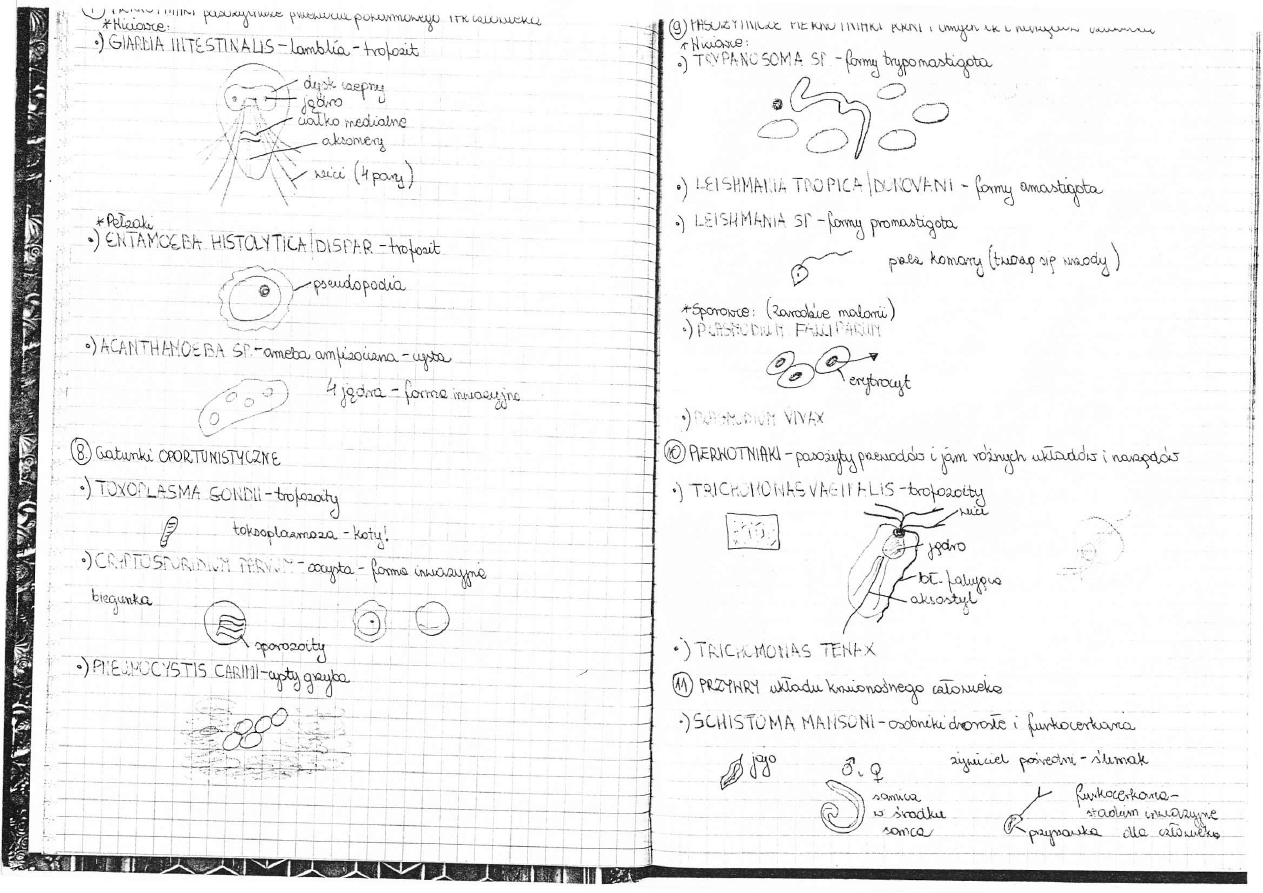 pasożytnicze przewodu pokarmowego człowieka
*Wiciowce:
•) GIARDIA INTESTINALIS – lamblia – trofozoit
dysk czepny
jądro
ciałko medialne
aksonemy
wici (4 pary)
*Pełzaki
•) ENTAMOEBA HISTOLYTICA/DISPAR – trofozoit
pseudopodia
•) ACANTHAMOEBA SP. – ameba – cysta
4 jądra – forma inwazyjna
8. Gatunki OPORTUNISTYCZNE
•) TOXOPLASMA GONDII – trofozoity
toksoplazmoza – koty!
•) CRYPTOSPORIDIUM PARVUM – oocysta – forma inwazyjna
biegunka
sporozoity
•) PNEUMOCYSTIS CARINII – cysty grzyba
9) PASOŻYTNICZE PIERWOTNIAKI KRWI i innych
*Wiciowce:
•) TRYPANOSOMA SP. – formy trypomastigota
•) LEISHMANIA TROPICA/DONOVANI – formy amastigota
•) LEISHMANIA SP – formy promastigota
przez komary (tworzą się wrzody)
*Sporowce: (zarodźce malarii)
•) PLASMODIUM FALCIPARUM
erytrocyt
•) PLASMODIUM VIVAX
10 PIERWOTNIAKI – pasożyty przewodów i jam różnych układów i narządów
•) TRICHOMONAS VAGINALIS – trofozoity
wici
jądro
bł. falująca
aksostyl
•) TRICHOMONAS TENAX
11 PRZYWRY układu krwionośnego człowieka
•) SCHISTOMA MANSONI – osobniki dorosłe i furkocerkaria
jajo
♂, ♀
żywiciel pośredni – ślimak
samica
w środku
samca
furkocerkaria –
stadium inwazyjne
dla człowieka
przyssawka